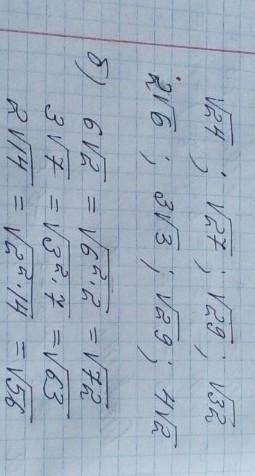 √24 ; √27 ; √29 ; √32
2√6 ; 3√3 ; √29 ; 4√2
б) 6√2 = √6²·2 = √72
3√7 = √3²·7 = √63
2√14 = √2²·14 = √56